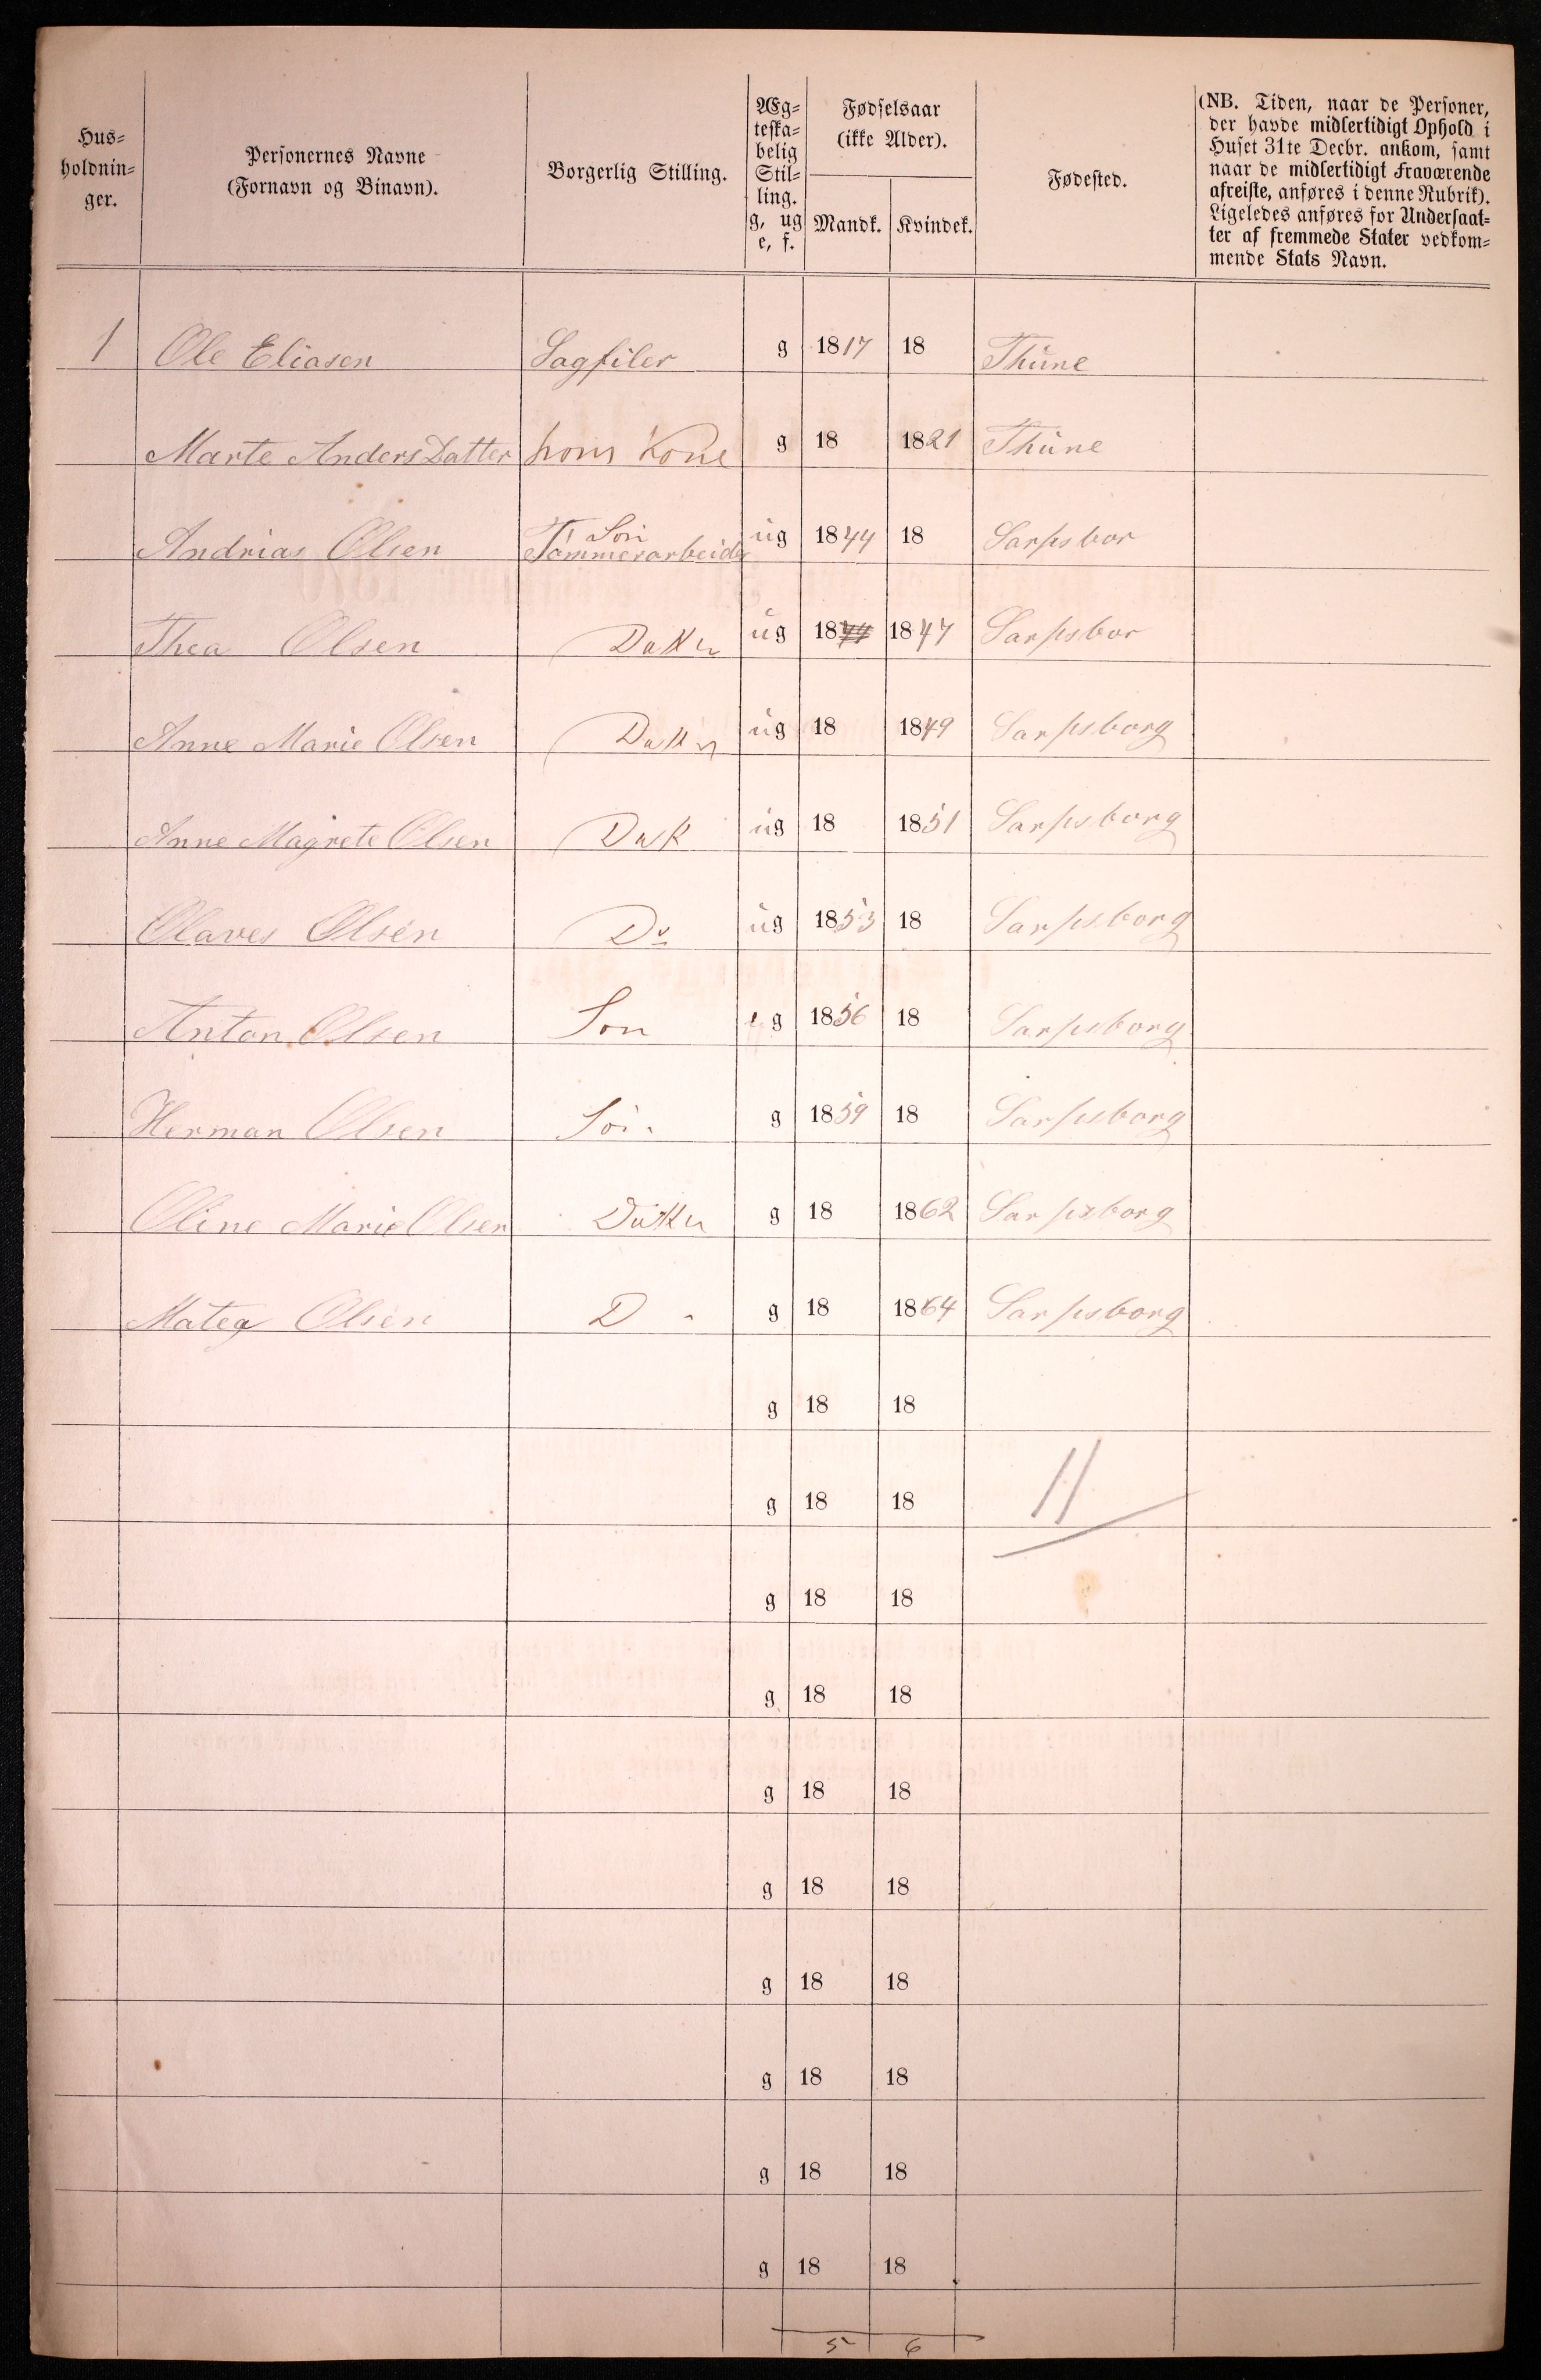 Hus-
holdnin-
ger.
Personernes Navne
(Fornavn og Binavn).
Borgerlig Stilling.
Æg-
teska-
belig
Stil-
ling.
g, ug
e, f.
Fødselsaar
(ikke Alder).
Mandk. Kvindek.
Fødested.
(NB. Tiden, naar de Personer,
der havde midlertidigt Ophold i
Huset 31te Decbr. ankom, samt
naar de midlertidigt Fraværende
afreiste, anføres i denne Rubrik).
Ligeledes anføres for Undersaat-
ter af fremmede Stater vedkom-
mende Stats Navn.
1 Ole Eliasen Sagfiler g 1817 18 Thune
Marte Anders Datter hans Kone g 18 1821 Thune
Andrias Olsen Søn Tømmerarbeider ug 1844 18 Sarpsbor
Thea Olsen Datter ug 1844 1847 Sarpsbor
Anne Marie Olsen Datter ug 18 1849 Sarpsborg
Anne Magrete Olsen Datt ug 18 1851 Sarpsborg
Olaves Olsen Do ug 1853 18 Sarpsborg
Anton Olsen Søn g 1856 18 Sarpsborg
Herman Olsen Søn g 1859 18 Sarpsborg
Oline Marie Olsen Datter g 18 1862 Sarpsborg
Matea Olsen D g 18 1864 Sarpsborg
g 18 18
g 18 18 11
g 18 18
g 18 18
g 18 18
g 18 18
g 18 18
g 18 18
g 18 18
g 18 18
5 6